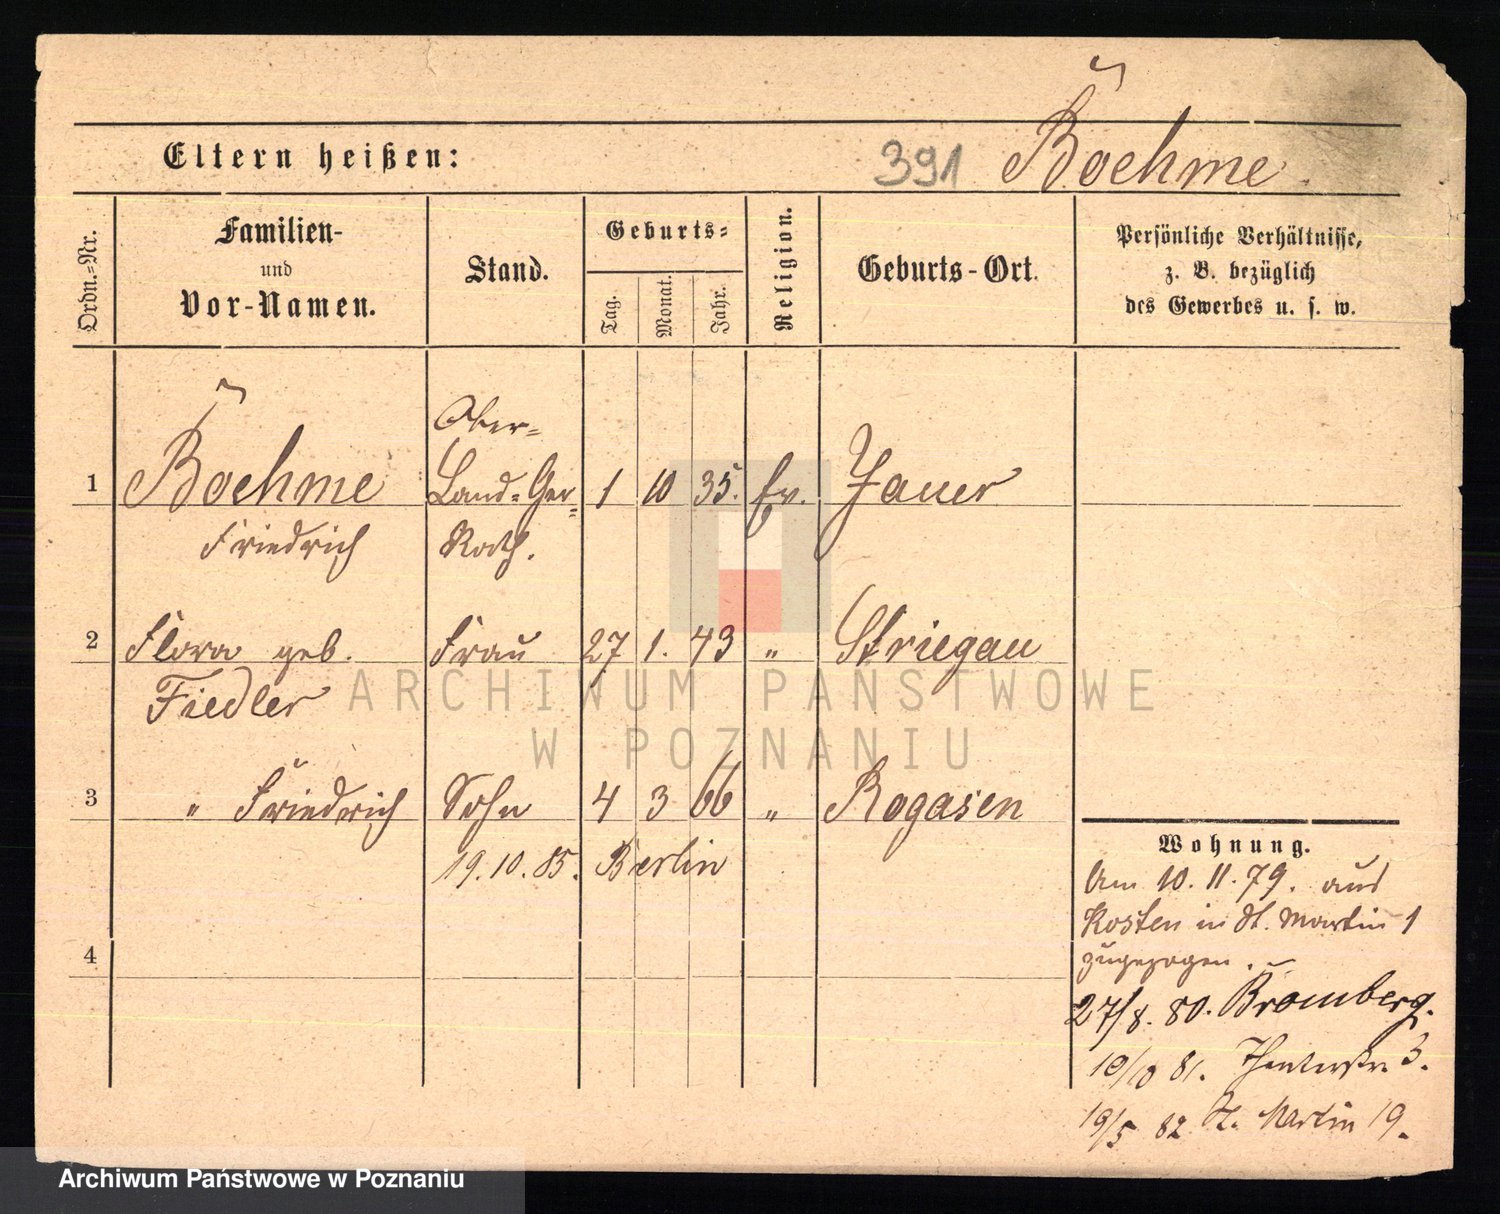 Eltern heißen: 391 Boehme.
Ordn.=Nr.
Familien-
und
Vor-Namen.
Stand.
Geburts=
Tag.
Monat.
Jahr.
Religion.
Geburts-Ort.
Persönliche Verhältnisse,
z. B. bezüglich
des Gewerbes u. s. w.
Ober=
1 Boehme Land=Ger= 1 10 35. Ev. Jauer
Friedrich Rath.
2 Flora geb. Frau 27 1. 43 " Striegau
Fiedler
3 " Friedrich Sohn 4 3 66 " Rogasen
19.10.85. Berlin
4
Wohnung.
Am 10.11.79. aus
Kosten in St. Martin 1
zugezogen.
27/8. 80. Bromberg.
10/10 81. Theaterstr 3.
19/5 82 St. Martin 19.
ARCHIWUM PAŃSTWOWE
W POZNANIU
Archiwum Państwowe w Poznaniu